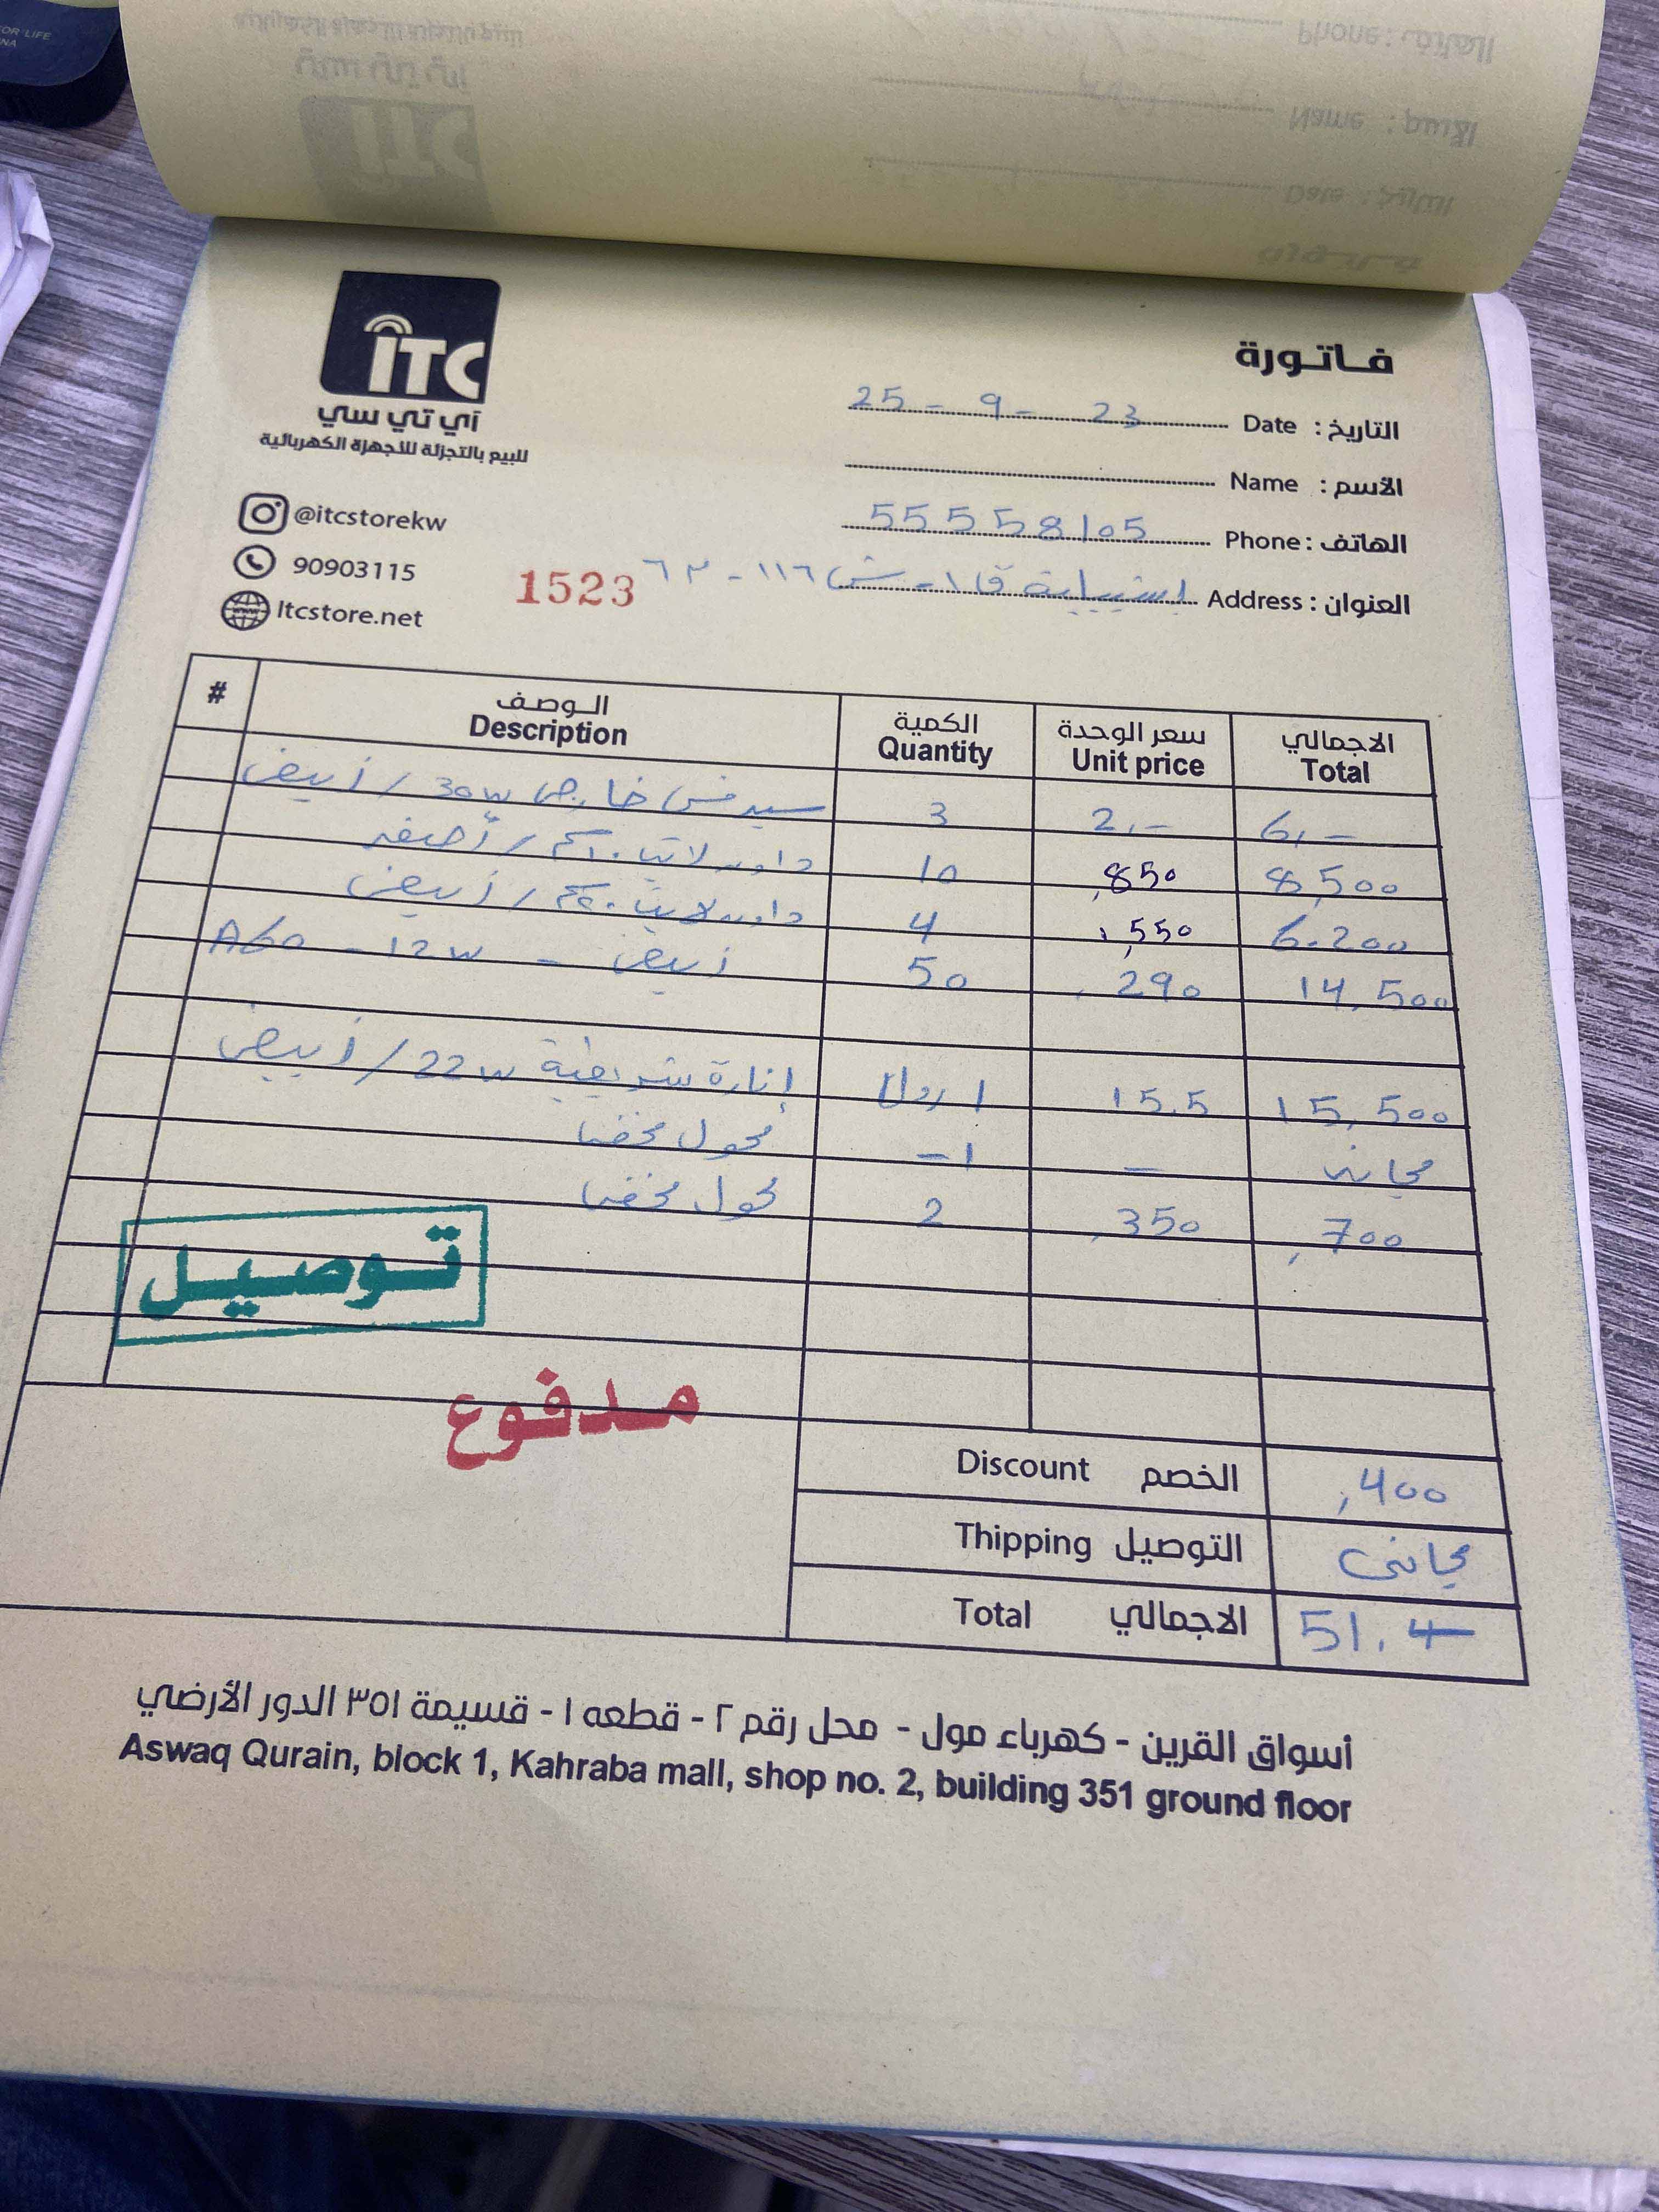 iTC
آي تي سي
للبيع بالتجزئة للأجهزة الكهربائية
@itcstorekw
90903115
Itcstore.net
1523
فـاتـورة
التاريخ : Date 25 - 9 - 23
الأسم : Name
الهاتف : Phone 55558105
العنوان : Address اشبيلية ق ١ - ش ١١٦ - م ٦
# الـوصـف الكمية سعر الوحدة الاجمالي
Description Quantity Unit price Total
خارجي 30w / أبيض 3 2,- 6,-
داون لايت ١٠سم / أصفر 10 ,850 8,500
داون لايت / أبيض 4 1,550 6.200
A60 - 12w - أبيض 50 ,290 14,500
إنارة شريطية 22w / أبيض 1 رول 15.5 15,500
محول مخفي 1- - مجاني
محول مخفي 2 ,350 ,700
تـوصـيـل
مـدفـوع
Discount الخصم ,400
Thipping التوصيل مجاني
Total الاجمالي 51.-
أسواق القرين - كهرباء مول - محل رقم ٢ - قطعه ١ - قسيمة ٣٥١ الدور الأرضي
Aswaq Qurain, block 1, Kahraba mall, shop no. 2, building 351 ground floor